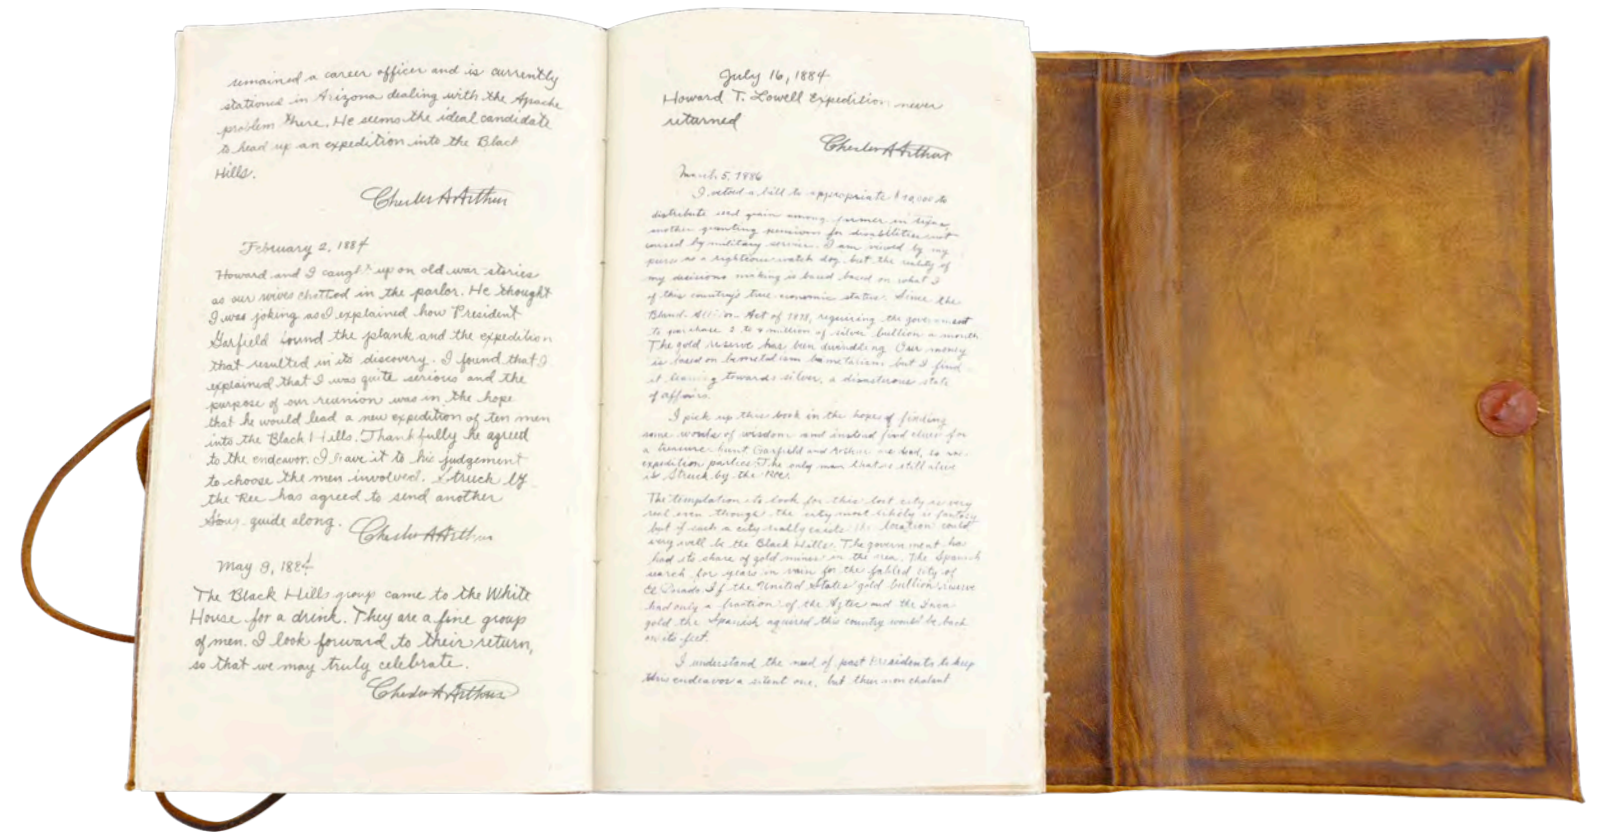 remained a career officer and is currently
stationed in Arizona dealing with the Apache
problem there. He seems the ideal candidate
to head up an expedition into the Black
Hills.
Chester A Arthur
February 2, 1884
Howard and I caught up on old war stories
as our wives chattod in the parlor. He thought
I was joking as I explained how President
Garfield found the plank and the expedition
that resulted in its discovery. I found that I
explained that I was quite serious and the
purpose of our reunion was in the hope
that he would lead a new expedition of ten men
into the Black Hills. Thankfully he agreed
to the endeavor. I leave it to his judgement
to choose the men involved. Struck by
the Ree has agreed to send another
Sioux guide along.
Chester A Arthur
May 9, 1884
The Black Hills group came to the White
House for a drink. They are a fine group
of men. I look forward to their return,
so that we may truly celebrate.
Chester A Arthur
July 16, 1884
Howard T. Lowell Expedition never
returned
Chester A Arthur
March 5, 1886
I vetoed a bill to appropriate $10,000 to
distribute seed grain among farmer in Texas
another granting pensions for disabilities not
caused by military service. I am viewed by my
as a righteous watch dog, but the reality of
my decisions making is based based on what I
of this country's true economic status. Since the
Bland-Allison Act of 1878, requiring the government
to purchase 2 to 4 million of silver bullion a month
The gold reserve has been dwindling. Our money
is based on bimetalism but I find
it leaning towards silver, a disasterous state
of affairs.
I pick up this book in the hopes of finding
some words of wisdom and instead find clues for
a treasure hunt Garfield and Arthur are dead, so are
expedition parties. The only man that is still alive
is Struck by the Ree.
The temptation to look for this lost city is very
real even though the city most likely is fantasy
but if such a city really exists the location could
very well be the Black Hills. The government has
had its share of gold mines in the area. The Spanish
search for years in vain for the fabled city of
El Dorado. If the United States gold bullion reserve
had only a fraction of the Aztec and the Inca
gold the Spanish aquired this country would be back
on its feet.
I understand the need of past Presidents to keep
this endeavor a silent one, but then non chalant